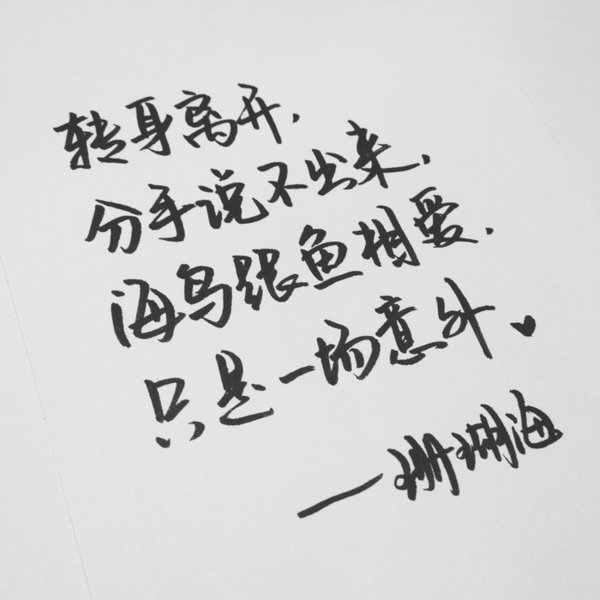 转身离开,
分手说不出来,
海鸟跟鱼相爱,
只是一场意外
——珊瑚海